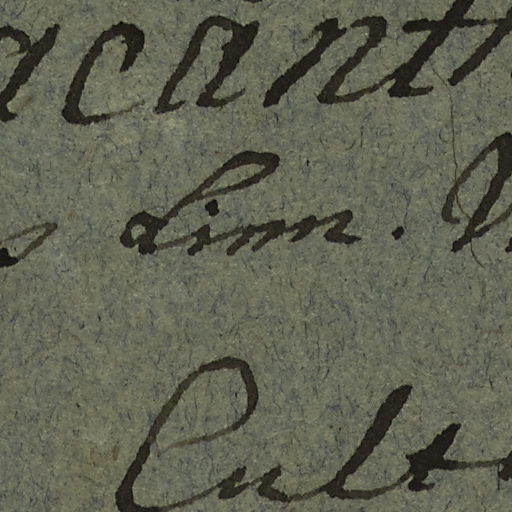 acant
Linn.
Cult